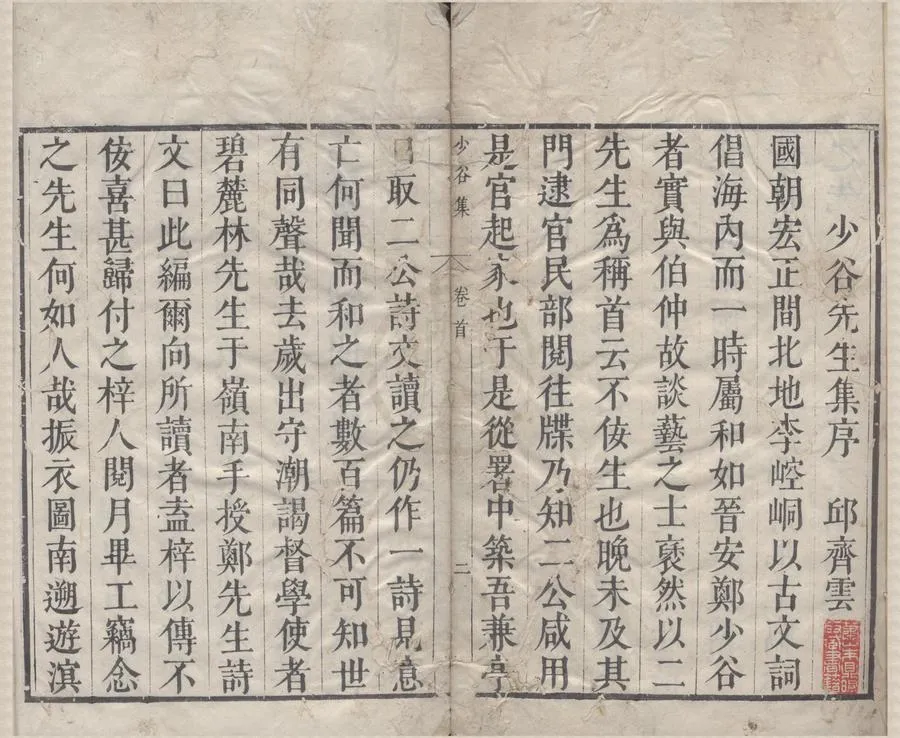 少谷先生集序 邱齊雲
國朝宏正間北地李崆峒以古文詞
倡海內而一時屬和如晉安鄭少谷
者實與伯仲故談藝之士裒然以二
先生爲稱首云不佞生也晚未及其
門逮官民部閱往牒乃知二公咸用
是官起家也于是從署中築吾兼亭
少谷集 卷首 二
日取二公詩文讀之仍作一詩見意
亡何聞而和之者數百篇不可知世
有同聲哉去歲出守潮謁督學使者
碧麓林先生于嶺南手授鄭先生詩
文曰此編爾向所讀者盍梓以傳不
佞喜甚歸付之梓人閱月畢工竊念
之先生何如人哉振衣圖南遡遊滇